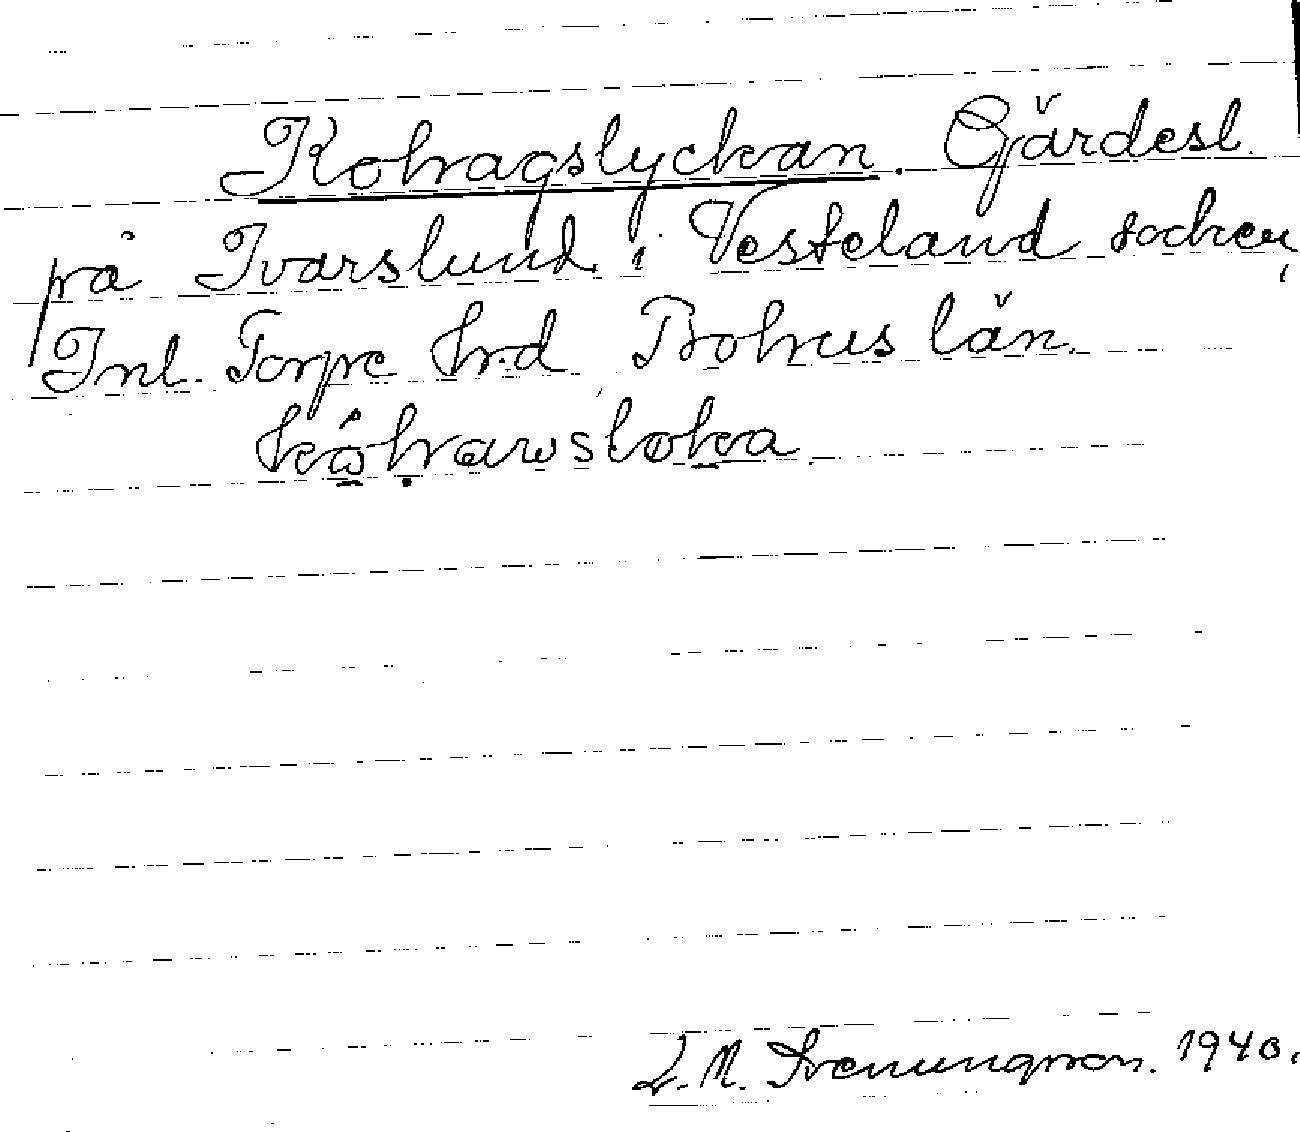 Kohagslyckan. Gärdesl.
på Ivarslund i Vesteland socken,
Inl. Torpe Hrd, Bohus län.
L. M. Svenungson. 1940.